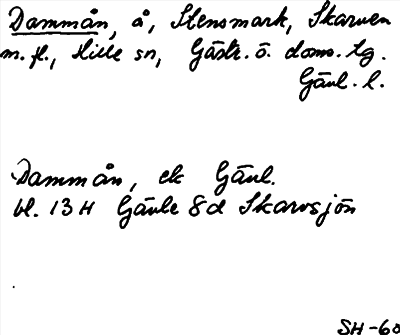 Dammån, å, Stensmark, Skarven
m.fl., Hille sn, Gästr. ö. doms. tg.
Gävl. l.
Dammån, ek Gävl.
bl. 13 H Gävle 8d Skarvsjön
SH-60